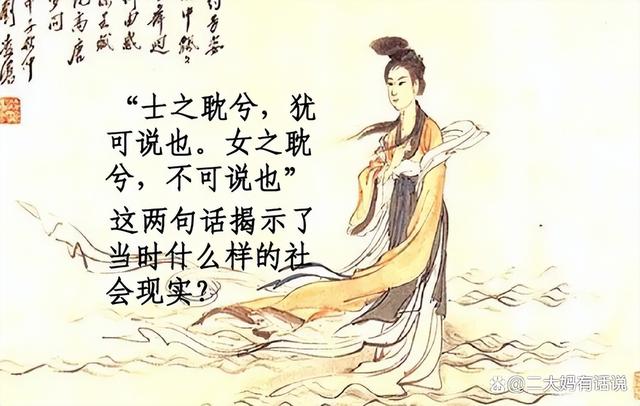 “士之耽兮，犹
可说也。女之耽
兮，不可说也”
这两句话揭示了
当时什么样的社
会现实？
@二大妈有话说